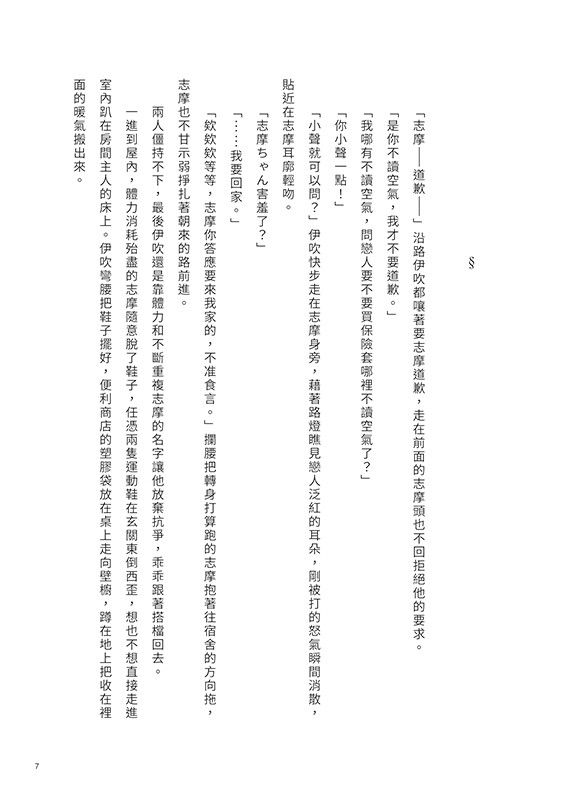 §
「志摩——道歉——」沿路伊吹都嚷著要志摩道歉，走在前面的志摩頭也不回拒絕他的要求。
「是你不讀空氣，我才不要道歉。」
「我哪有不讀空氣，問戀人要不要買保險套哪裡不讀空氣了？」
「你小聲一點！」
「小聲就可以問？」伊吹快步走在志摩身旁，藉著路燈瞧見戀人泛紅的耳朵，剛被打的怒氣瞬間消散，
貼近在志摩耳廓輕吻。
「志摩ちゃん害羞了？」
「……我要回家。」
「欸欸欸等等，志摩你答應要來我家的，不准食言。」攔腰把轉身打算跑的志摩抱著往宿舍的方向拖，
志摩也不甘示弱掙扎著朝來的路前進。
兩人僵持不下，最後伊吹還是靠體力和不斷重複志摩的名字讓他放棄抗爭，乖乖跟著搭檔回去。
一進到屋內，體力消耗殆盡的志摩隨意脫了鞋子，任憑兩隻運動鞋在玄關東倒西歪，想也不想直接走進
室內趴在房間主人的床上。伊吹彎腰把鞋子擺好，便利商店的塑膠袋放在桌上走向壁櫥，蹲在地上把收在裡
面的暖氣搬出來。
7